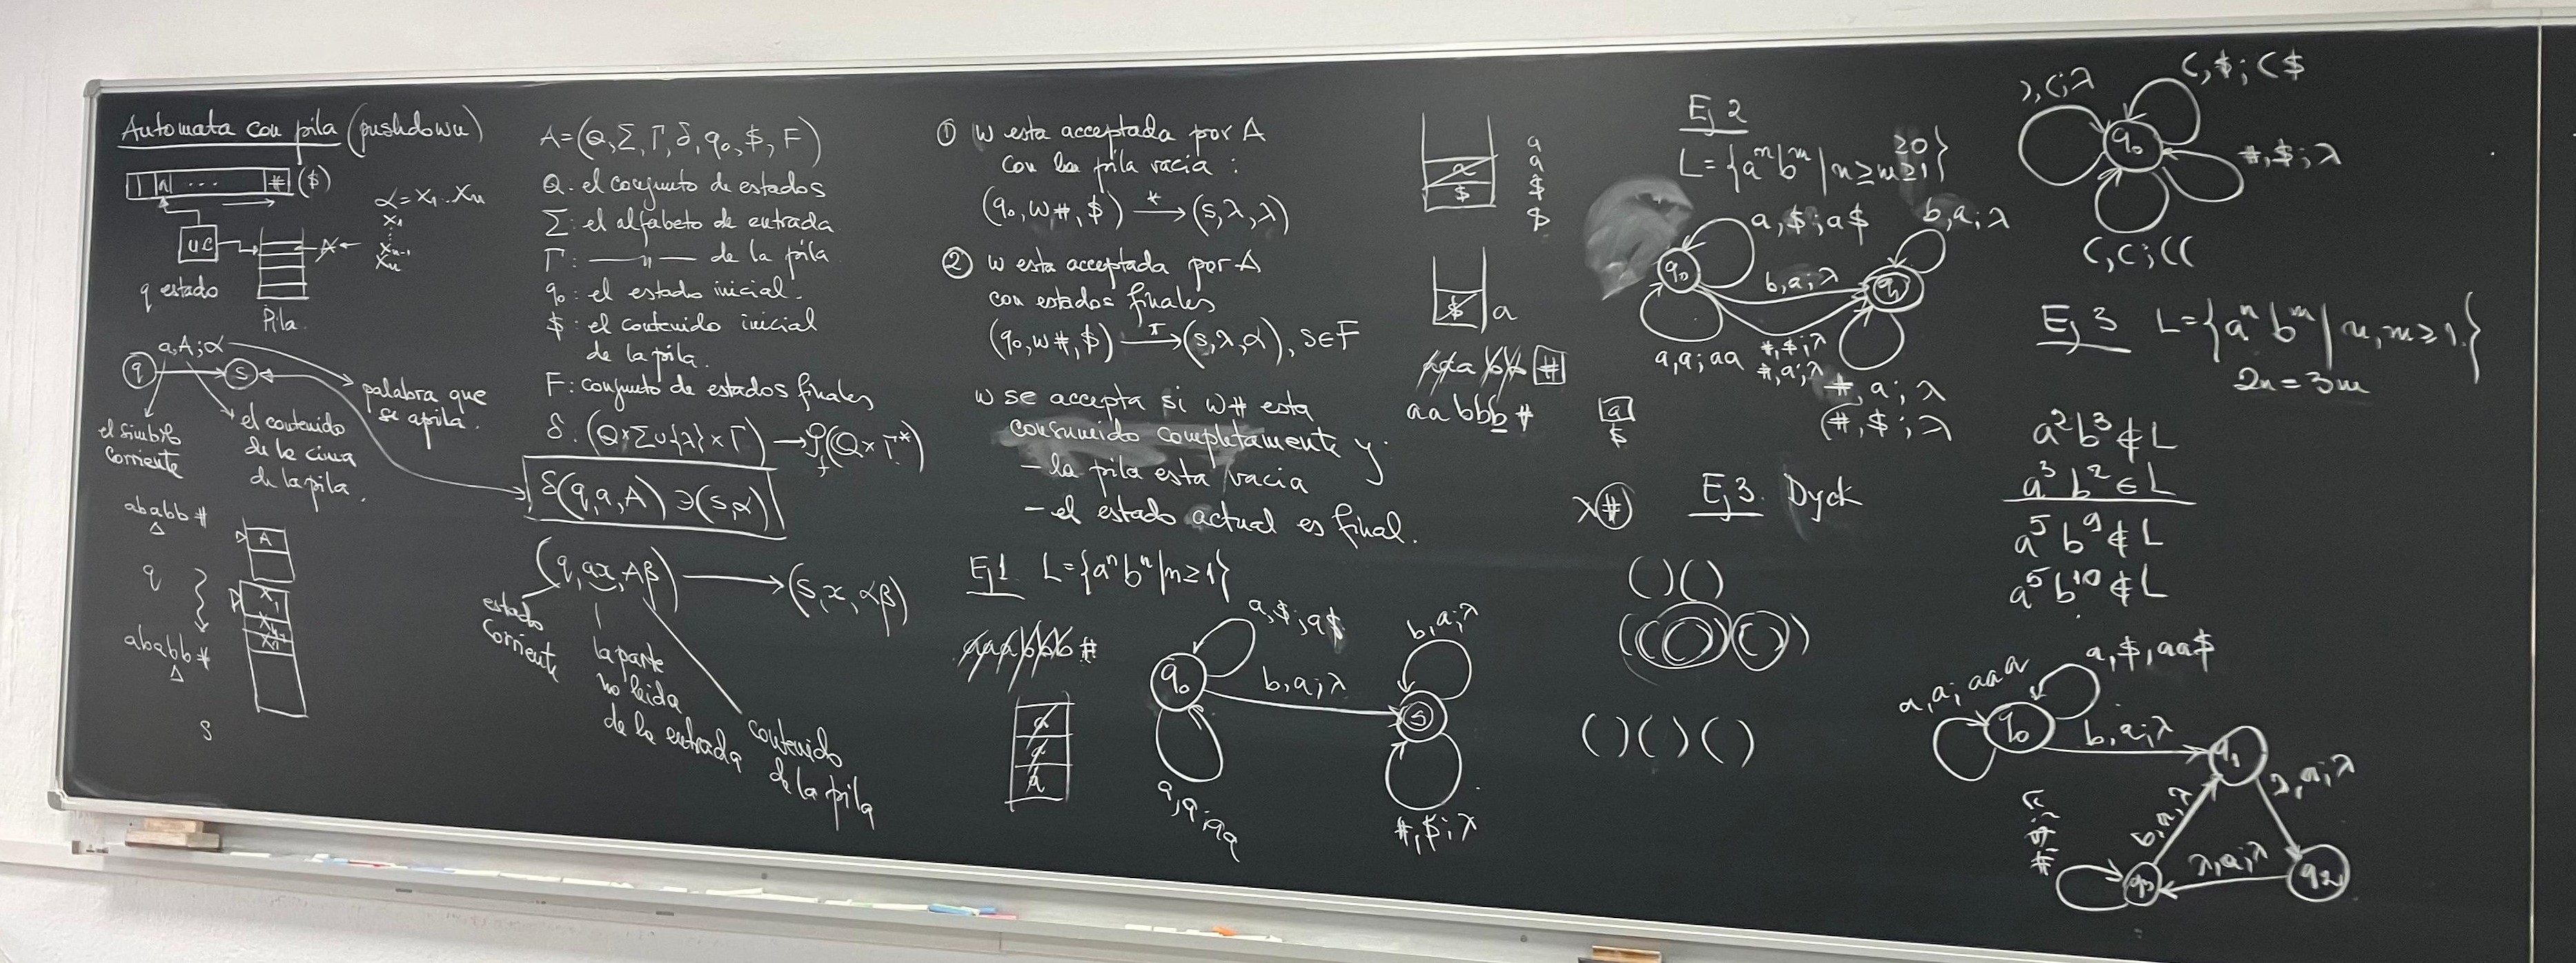 Automata con pila (pushdown)
a ... # ($)
α = x₁..xₙ
x₁
⋮
xₙ₋₁
xₙ
UC
A
q estado
Pila.
a,A;α
q
s
palabra que
se apila.
el simbolo
corriente
el contenido
de la cima
de la pila.
ababb#
△
q
ababb#
△
s
A
x₁
xₙ
A=(Q,Σ,Γ,δ,q₀,$,F)
Q: el conjunto de estados
Σ: el alfabeto de entrada
Γ: —— " —— de la pila
q₀: el estado inicial.
$: el contenido inicial
de la pila.
F: conjunto de estados finales
δ: (Q×Σ∪{λ}×Γ) → 𝒫f(Q×Γ*)
δ(q,a,A) ∋ (s,α)
(q,ax,Aβ) → (s,x,αβ)
estado
corriente
la parte
no leida
de la entrada
contenido
de la pila
① w esta acceptada por A
con la pila vacia :
(q₀,w#,$) →* (s,λ,λ)
② w esta acceptada por A
con estados finales
(q₀,w#,$) →* (s,λ,α), s∈F
w se accepta si w# esta
consumido completamente y:
- la pila esta vacia
- el estado actual es final.
Ej1. L={aⁿbⁿ|n≥1}
aaabbb#
a
a
a
q₀
a,$;a$
b,a;λ
b,a;λ
s
a,a;aa
#,$;λ
a
$
a
a
$
$
$
a
aaabb#
aabbb#
a
$
Ej 2
L={aⁿbᵐ|n≥m≥1}
≥0
a,$;a$
b,a;λ
q₀
b,a;λ
q₁
a,a;aa
#,$;λ
#,a;λ
#,a;λ
(#,$;λ
λ#
Ej3. Dyck
()()
(( () )( ))
()()()
),(;λ
(,$;($
q₀
#,$;λ
(,(;((
Ej 3 L={aⁿbᵐ|n,m≥1.}
2n=3m
a²b³∉L
a³b²∈L
a⁵b⁹∉L
a⁵b¹⁰∉L
a,a;aaa
a,$,aa$
q₀
b,a;λ
q₁
λ,a;λ
b,a;λ
#,$;λ
λ,a;λ
q₂
q₃